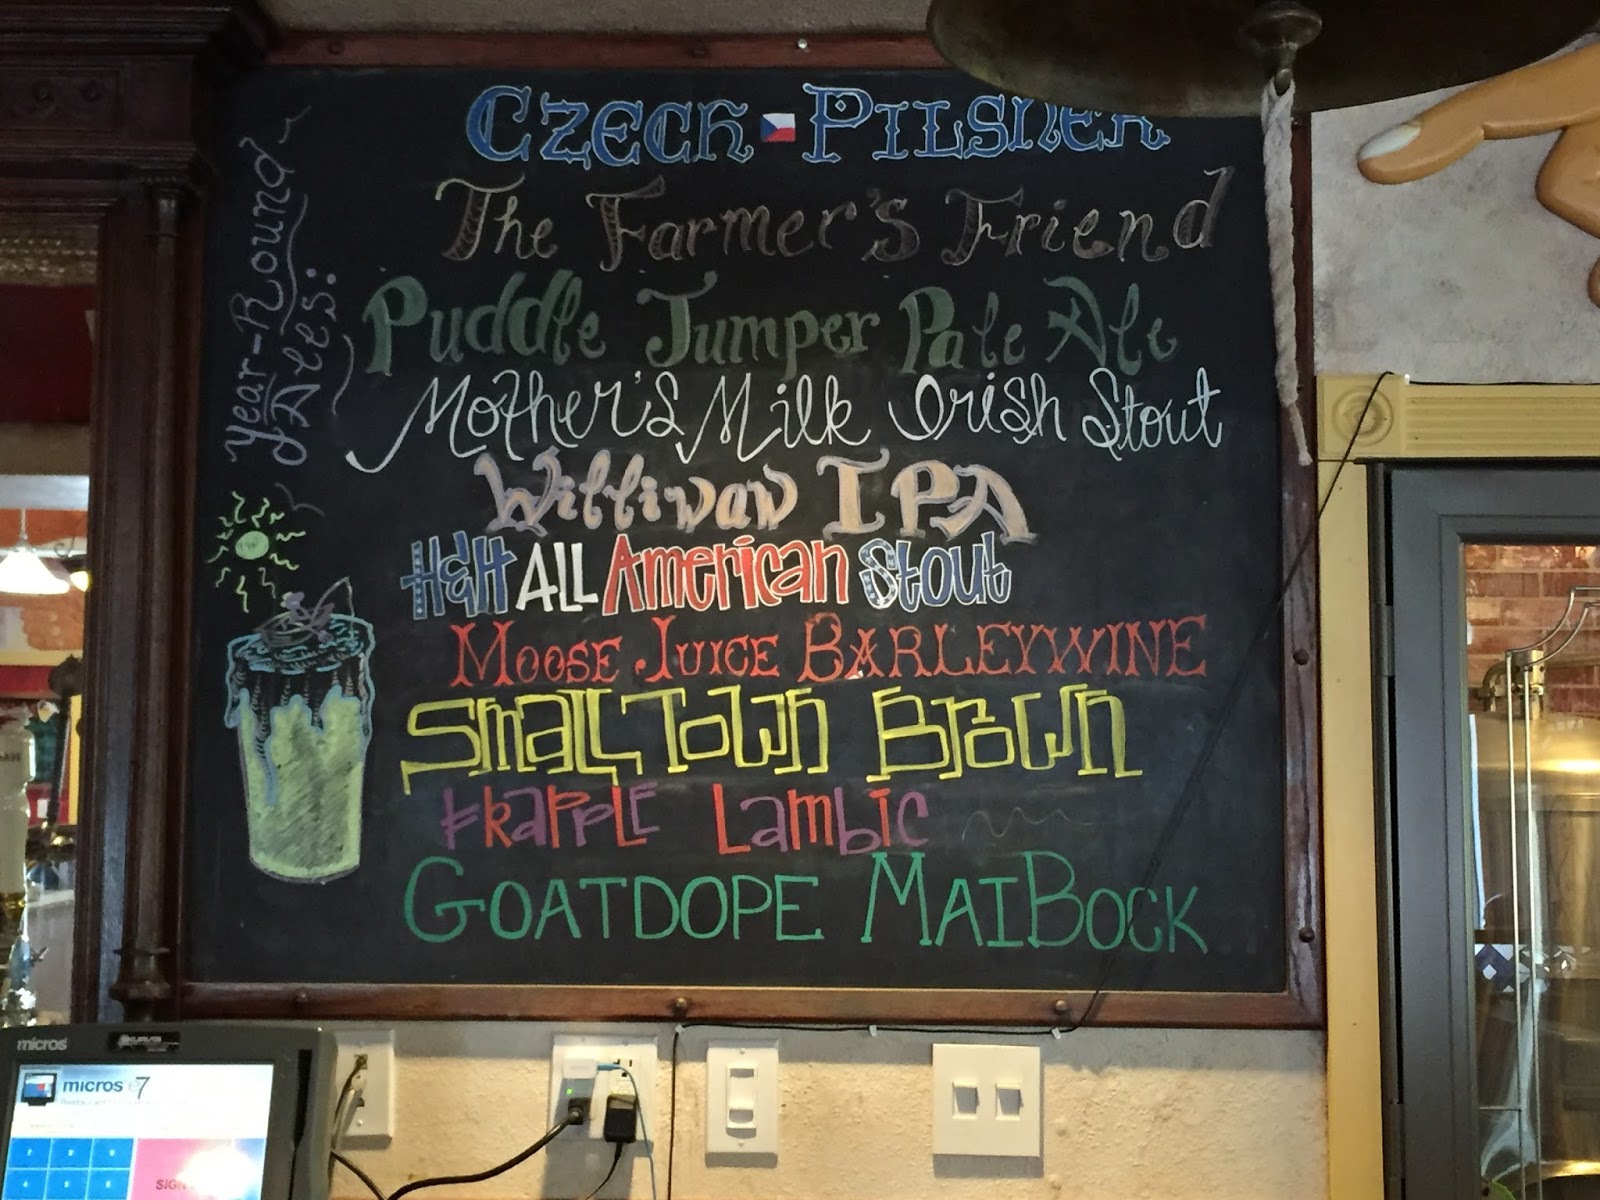 Year-Round
Ales:
Czech Pilsner
The Farmer's Friend
Puddle Jumper Pale Ale
Mother's Milk Irish Stout
Williwaw IPA
H&H All American Stout
Moose Juice Barleywine
Small Town Brown
Frapple Lambic
Goatdope MaiBock
micros
micros e7
SIGN